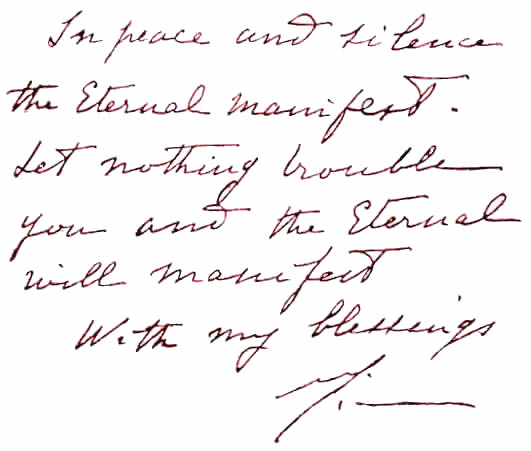 In peace and silence
the Eternal manifest.
Let nothing trouble
you and the Eternal
will manifest
With my blessings